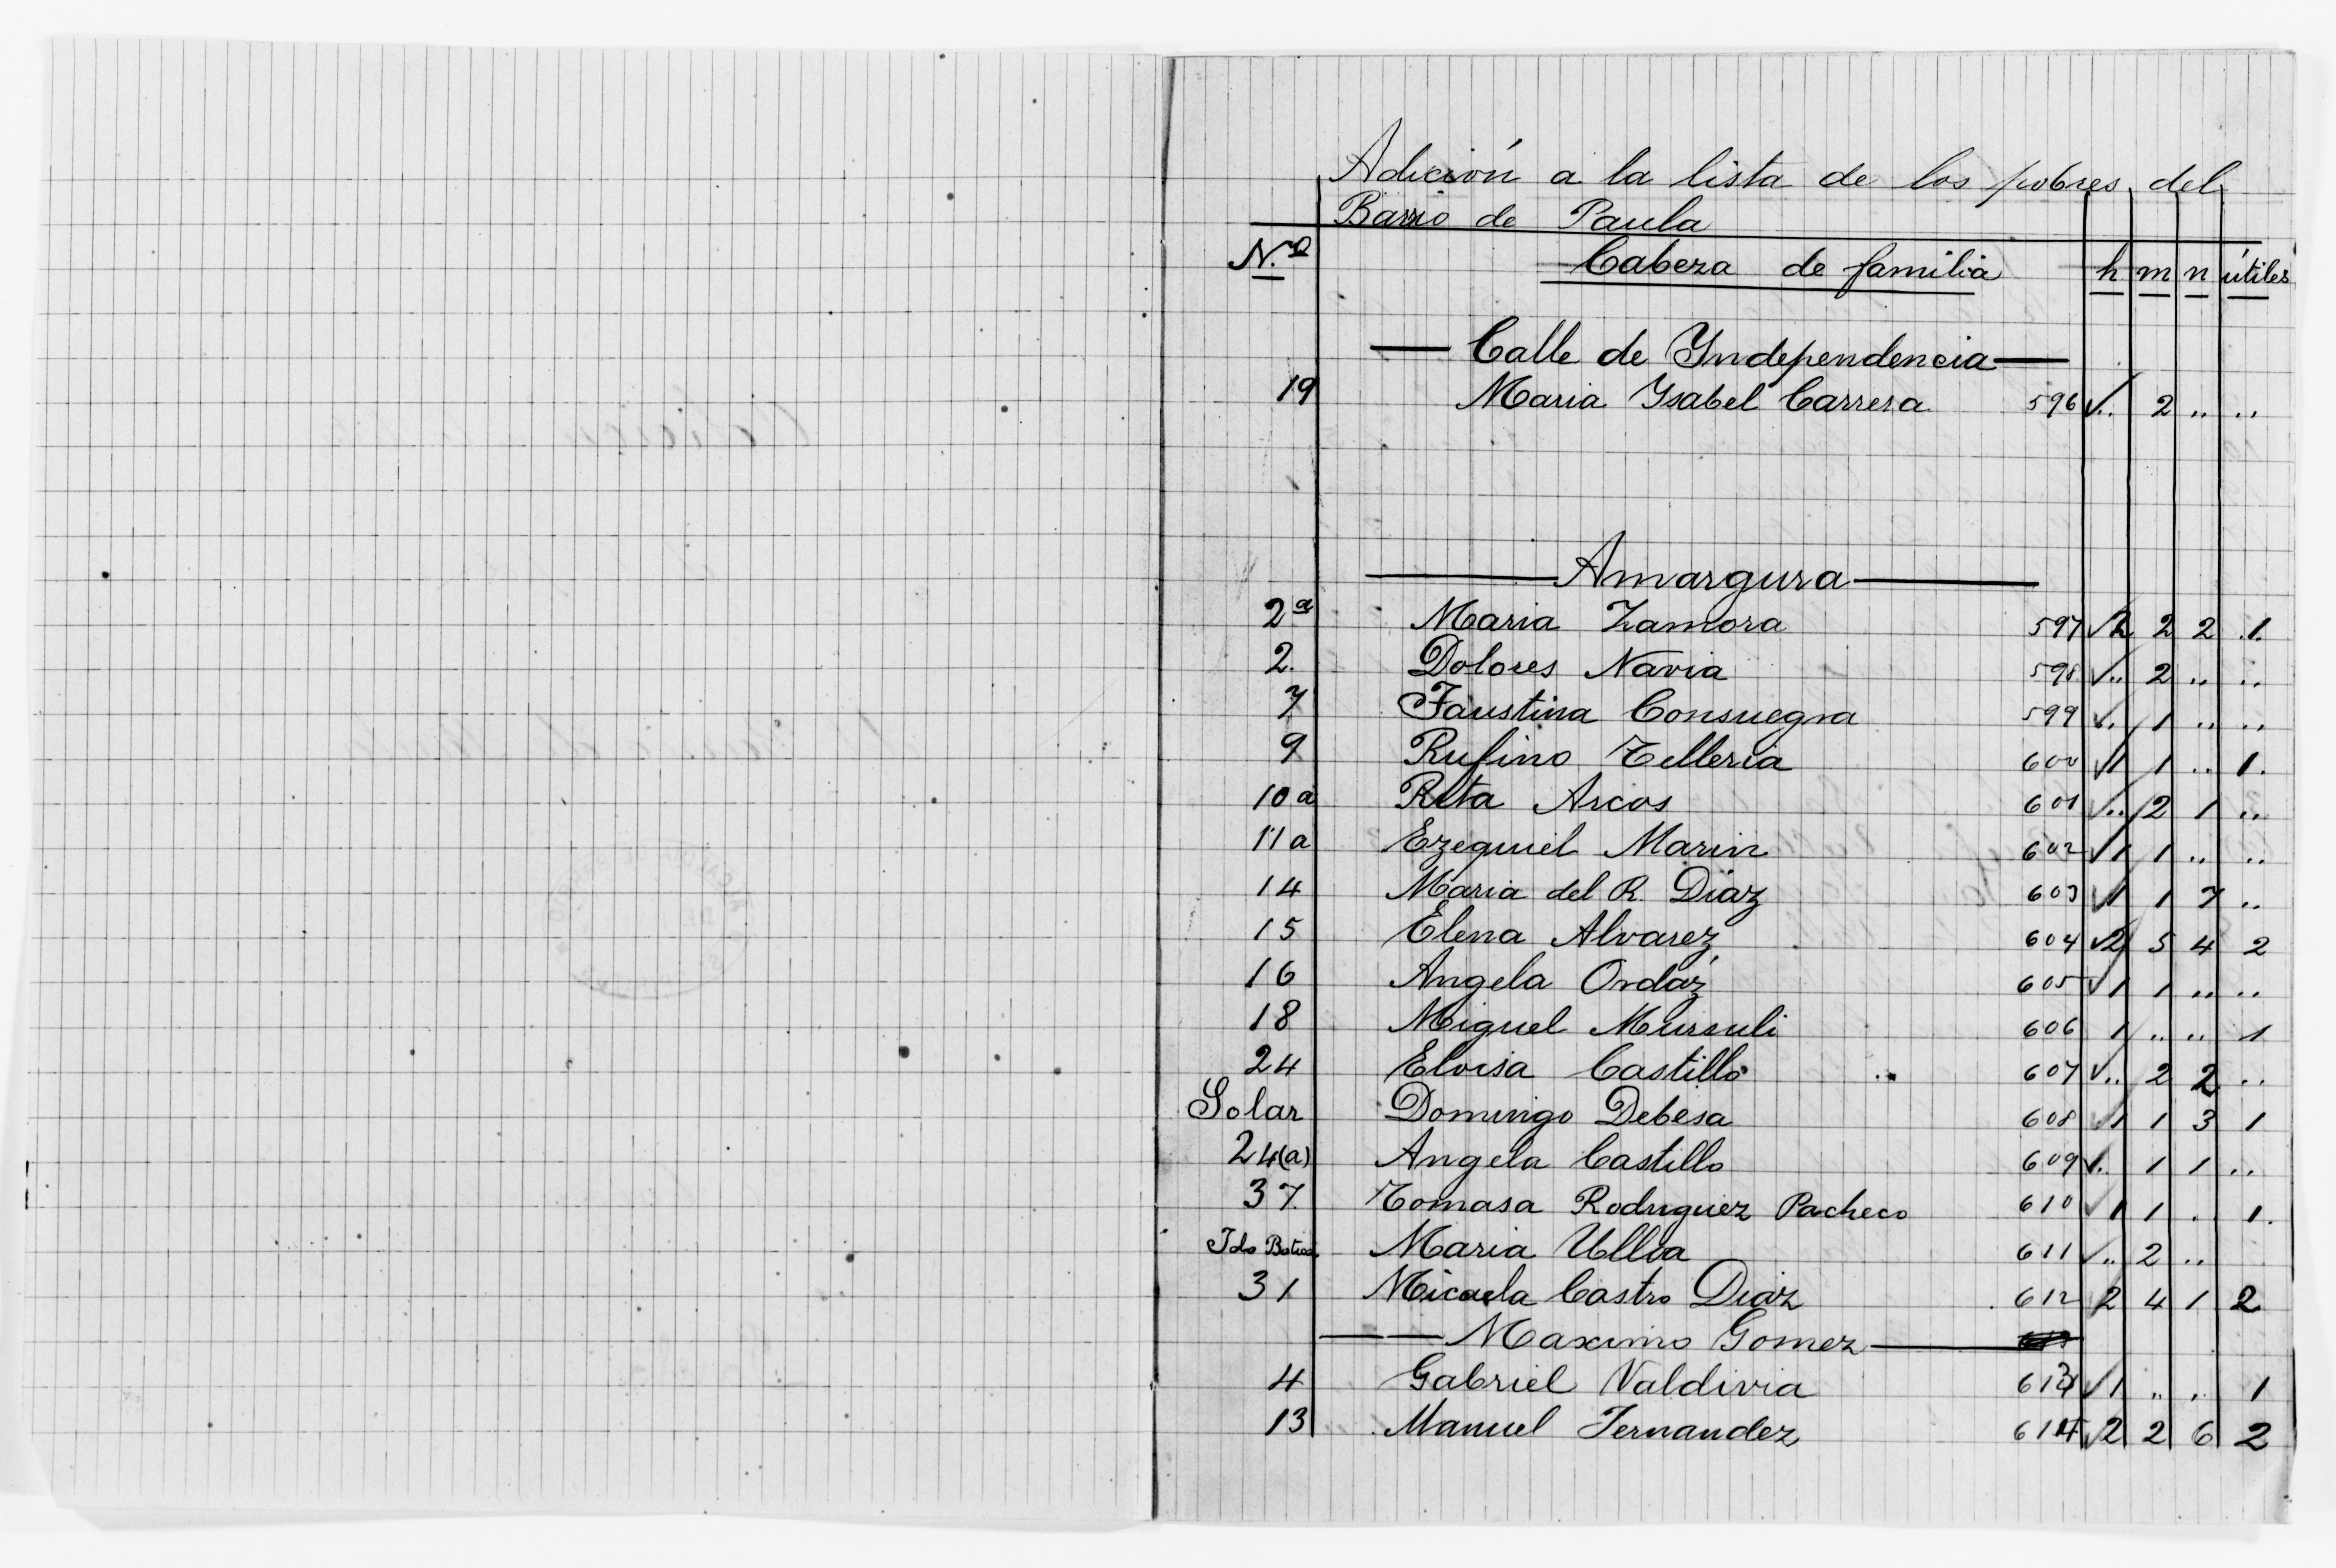 Adición a la lista de los pobres del
Barrio de Paula
N.º Cabeza de familia h m n útiles
Calle de Yndependencia
19 Maria Ysabel Carrera 596 ✓ .. 2 .. ..
Amargura
2a Maria Zamora 597 ✓ 2 2 2 .1.
2. Dolores Navia 598 ✓ .. 2 .. ..
7 Faustina Consuegra 599 ✓ .. 1 .. ..
9 Rufino Telleria 600 ✓ 1 1 .. 1.
10a Rita Arcos 601 ✓ .. 2 1 ..
11a Ezequiel Marin 602 ✓ 1 1 .. ..
14 Maria del R. Diaz 603 ✓ 1 1 7 ..
15 Elena Alvarez 604 ✓ 2 5 4 2
16 Angela Ordáz 605 ✓ 1 1 .. ..
18 Miguel Mursuli 606 1 .. .. 1
24 Eloisa Castillo 607 ✓ .. 2 2 ..
Solar Domingo Debesa 608 ✓ 1 1 3 1
24(a) Angela Castillo 609 ✓ .. 1 1 ..
37. Tomasa Rodriguez Pacheco 610 ✓ 1 1 .. 1.
Maria Ulloa 611 ✓ .. 2 ..
31 Micaela Castro Diaz 612 2 4 1 2
Maximo Gomez
4 Gabriel Valdivia 613 ✓ 1 .. .. 1
13 Manuel Fernandez 614 ✓ 2 2 6 2